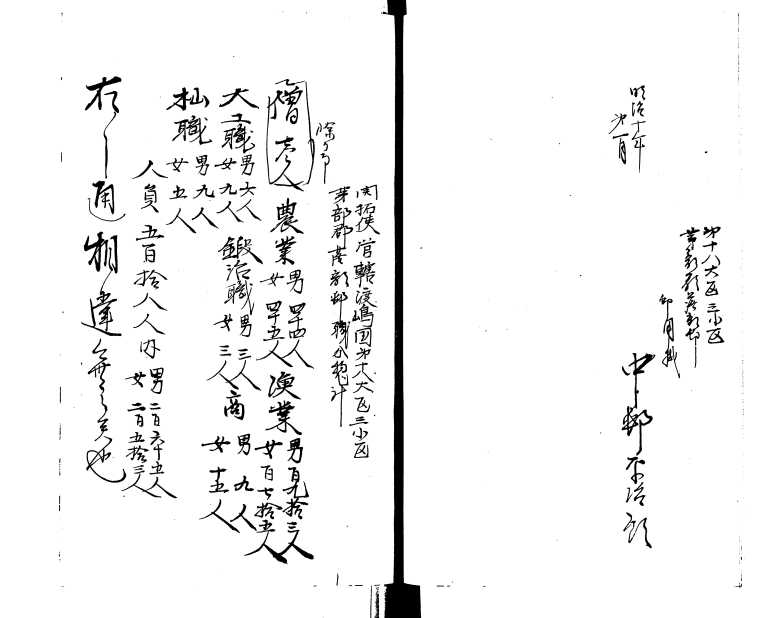 明治十年
第一月
第十八大区三小区
茅部郡落部邨
御用掛
中邨平治郎
開拓使管轄渡嶋国第十八大区三小区
茅部郡落部邨職分惣計
除ク
僧 壱人
農業 男四十四人 女四十五人
漁業 男百九拾三人 女百七拾五人
大工職 男六人 女九人
鍛冶職 男三人 女三人
商 男九人 女十五人
杣職 男九人 女五人
人員五百拾八人内 男二百六十五人 女二百五拾三人
右之通相違無之候也